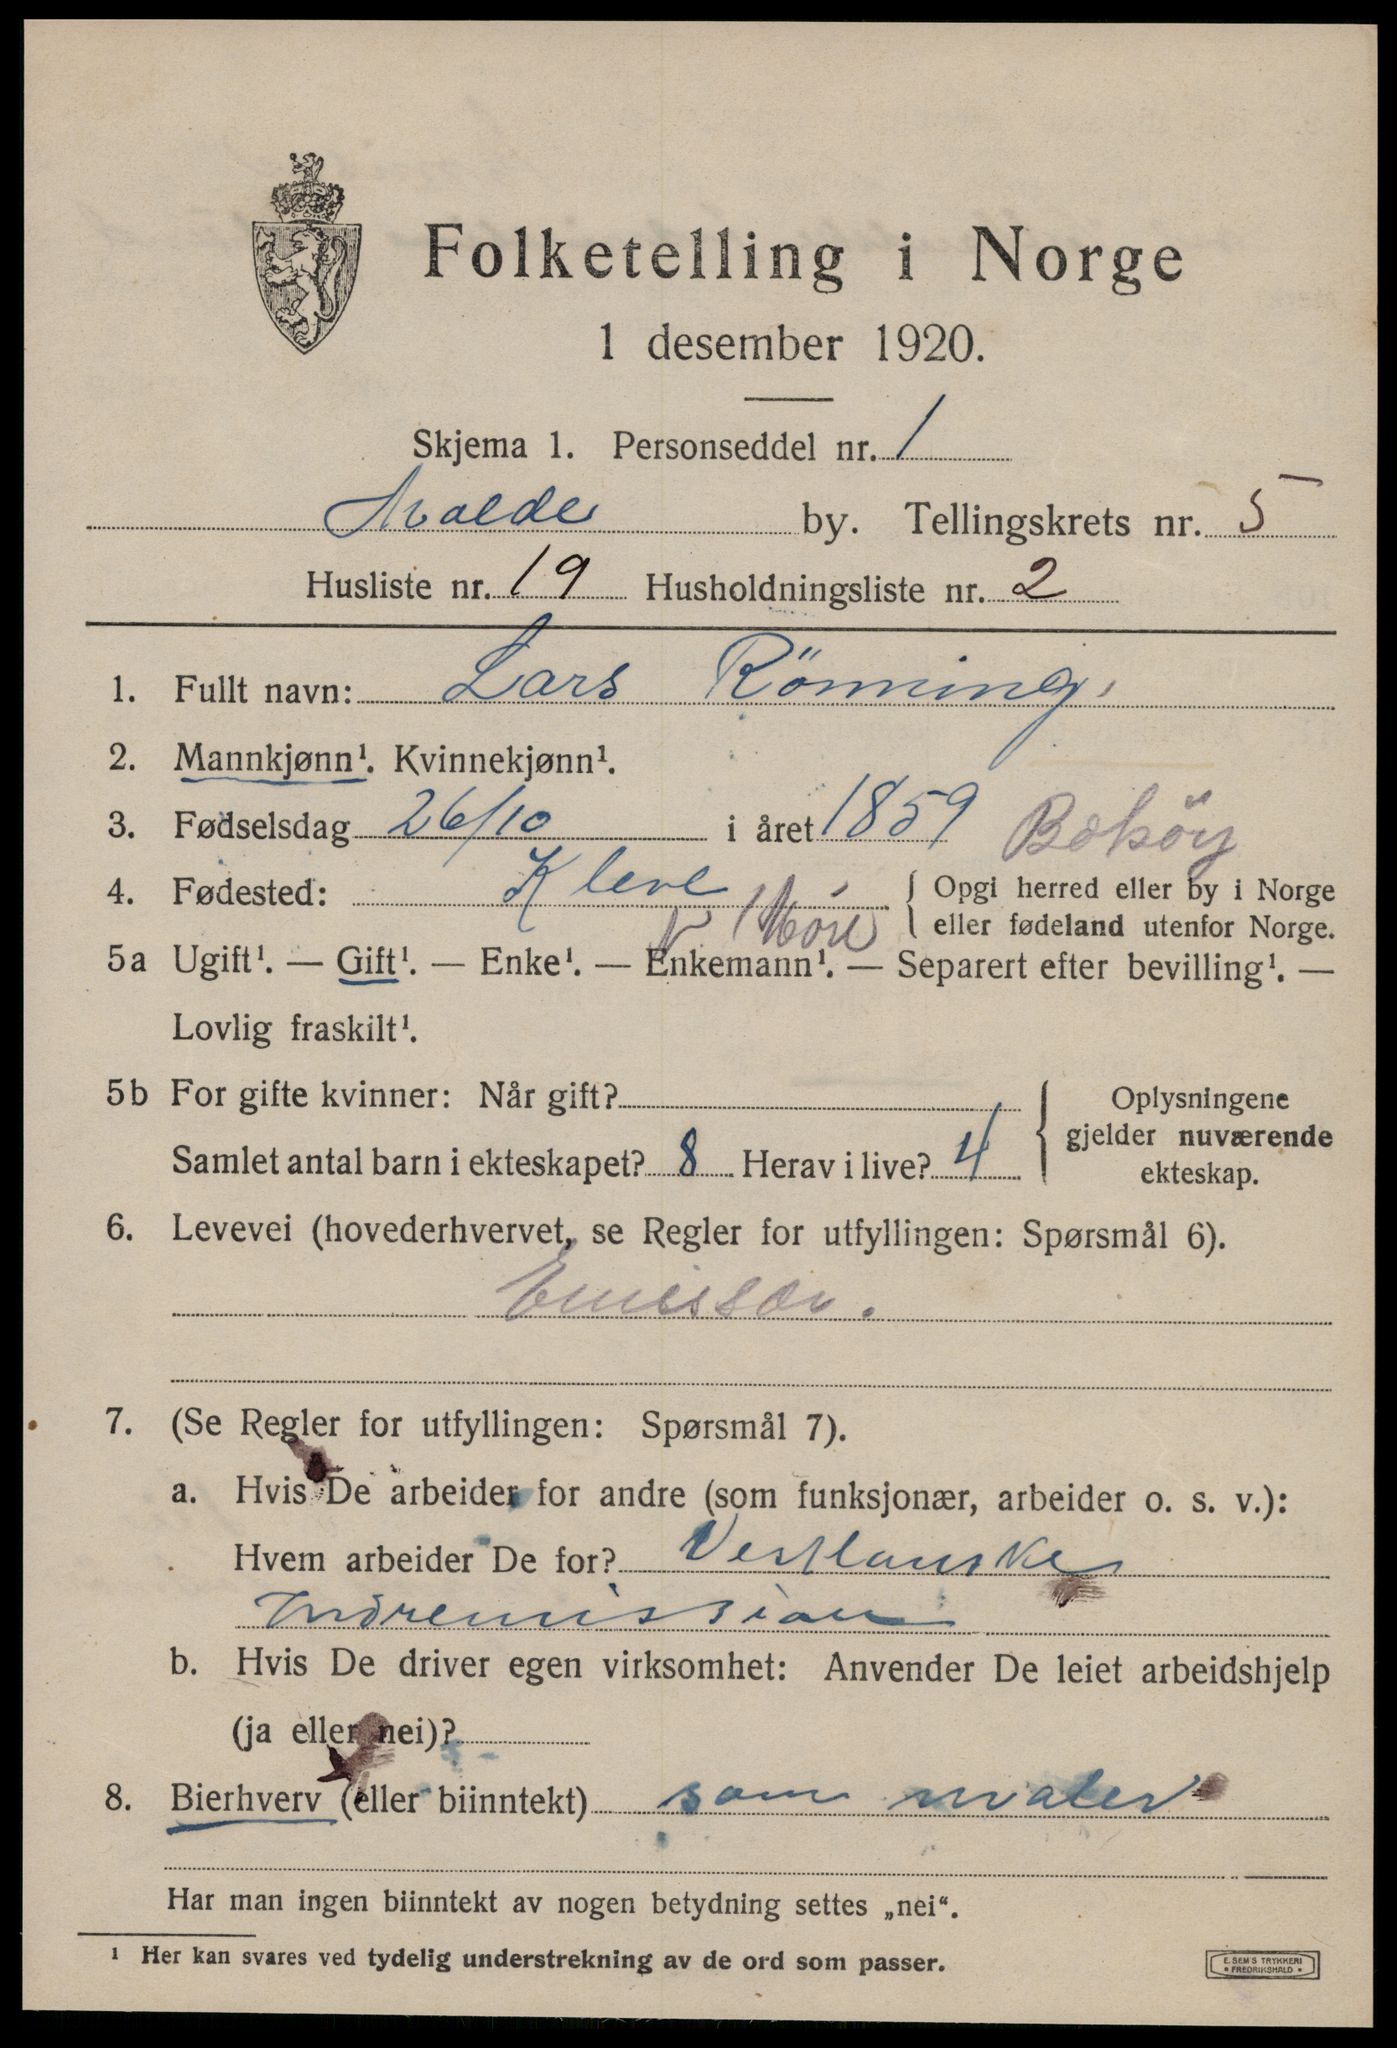 Folketelling i Norge
1 desember 1920.
Skjema 1. Personseddel nr. 1
Molde by. Tellingskrets nr. 5
Husliste nr. 19 Husholdningsliste nr. 2
1. Fullt navn: Lars Rönning.
2. Mannkjønn¹. Kvinnekjønn¹.
3. Fødselsdag 26/10 i året 1859
Bolsöy
4. Fødested: Kleve { Opgi herred eller by i Norge
eller fødeland utenfor Norge.
v Möre
5a Ugift¹. — Gift¹. — Enke¹. — Enkemann¹. — Separert efter bevilling¹. —
Lovlig fraskilt¹.
5b For gifte kvinner: Når gift?
Samlet antal barn i ekteskapet? 8 Herav i live? 4
{ Oplysningene
gjelder nuværende
ekteskap.
6. Levevei (hovederhvervet, se Regler for utfyllingen: Spørsmål 6).
Emissær.
7. (Se Regler for utfyllingen: Spørsmål 7).
a. Hvis De arbeider for andre (som funksjonær, arbeider o. s. v.):
Hvem arbeider De for? Vestlanske
Indremission
b. Hvis De driver egen virksomhet: Anvender De leiet arbeidshjelp
(ja eller nei)?
8. Bierhverv (eller biinntekt) som maler
Har man ingen biinntekt av nogen betydning settes „nei“.
¹ Her kan svares ved tydelig understrekning av de ord som passer.
E. SEM'S TRYKKERI
• FREDRIKSHALD •